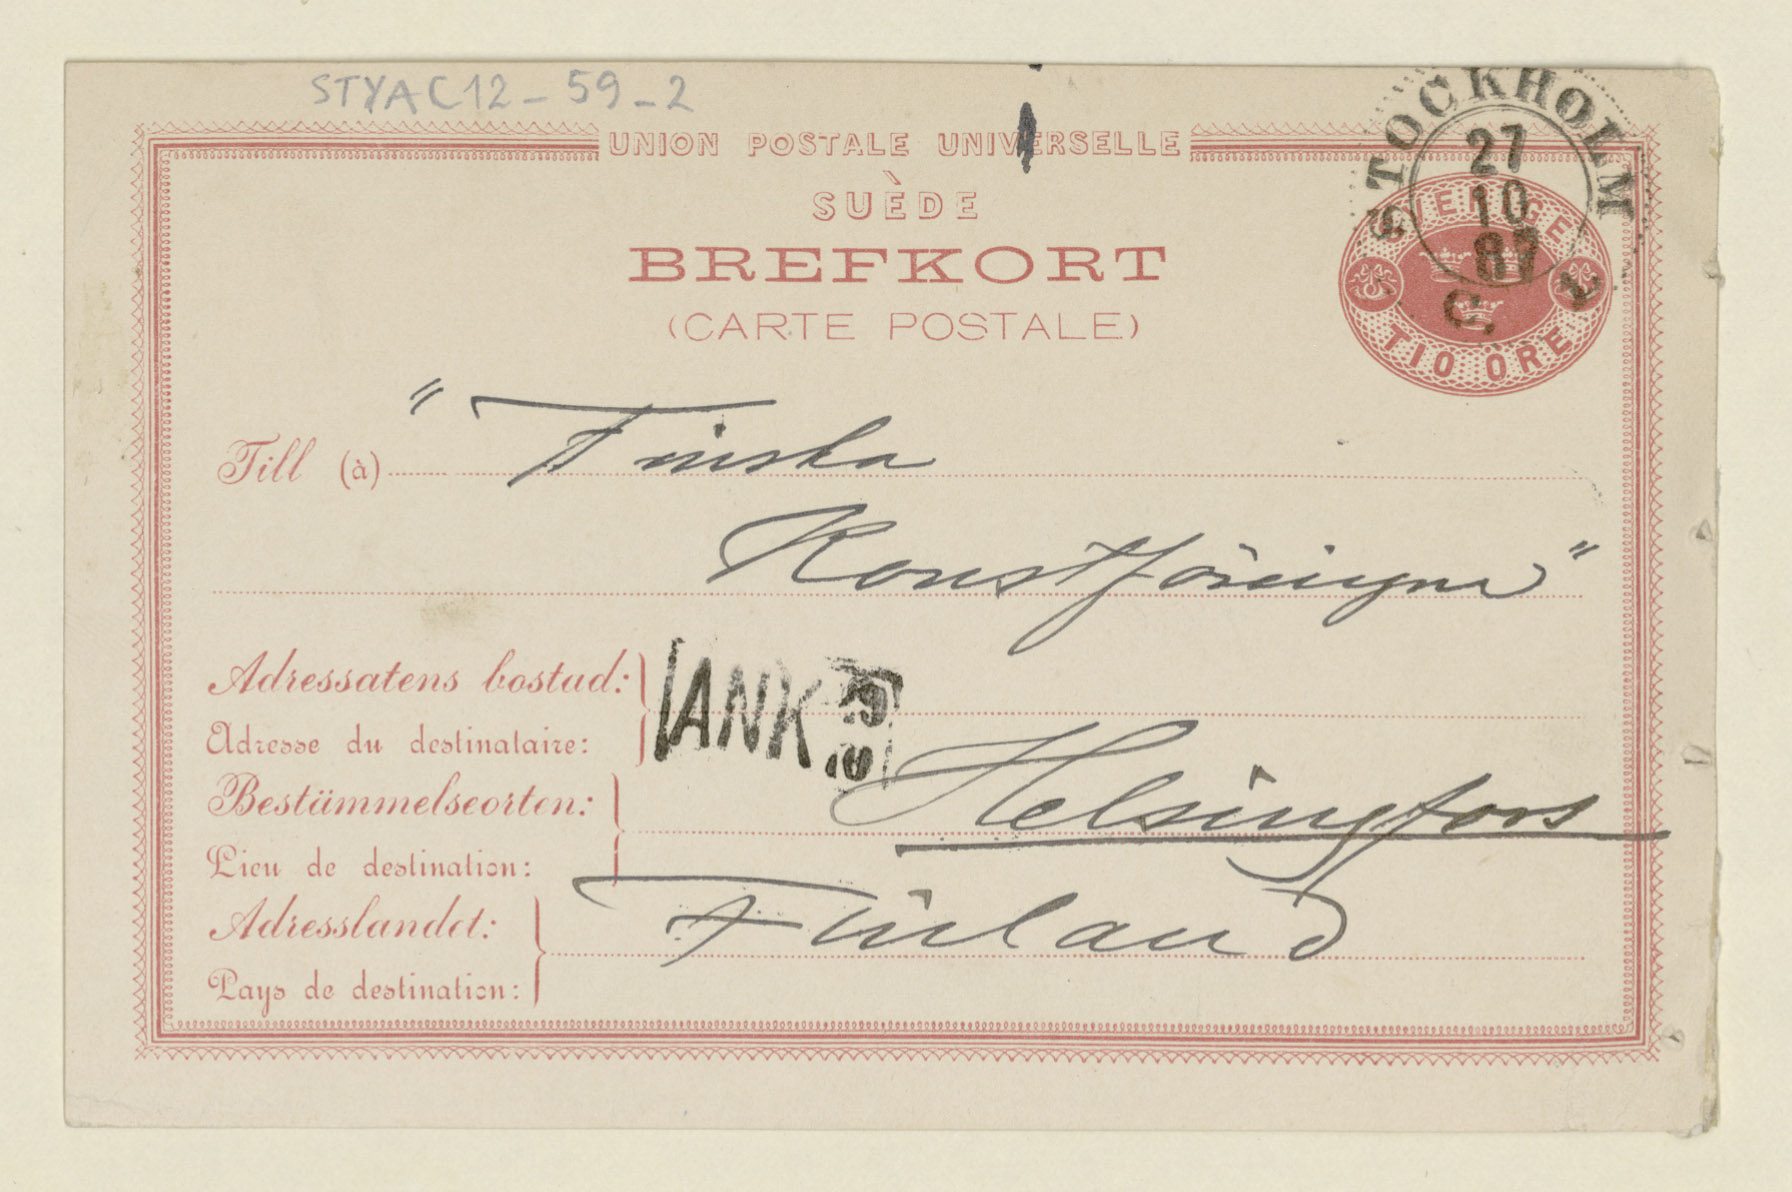 STYAC12-59-2
UNION POSTALE UNIVERSELLE
SUÈDE
BREFKORT
(CARTE POSTALE)
STOCKHOLM
27
10
87
C. L
SVERIGE
TIO ÖRE
Till (à) "Finska
Konstföreningen"
Adressatens bostad:
Adresse du destinataire:
ANK
Bestämmelseorten: Helsingfors
Lieu de destination:
Adresslandet: Finland
Pays de destination: